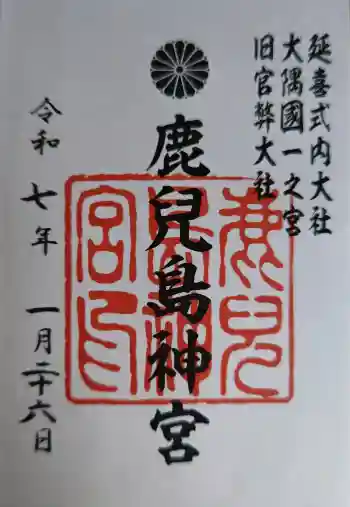 延喜式内大社
大隅國一之宮
旧官弊大社
鹿兒島神宮
令和七年一月二十六日
鹿兒
島神
宮印